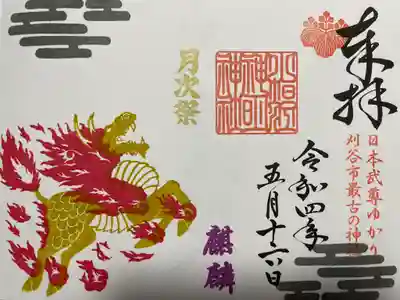 奉拝
日本武尊ゆかり
刈谷市最古の神社
令和四年
五月十六日
小垣江
神明
神社
月次祭
麒麟